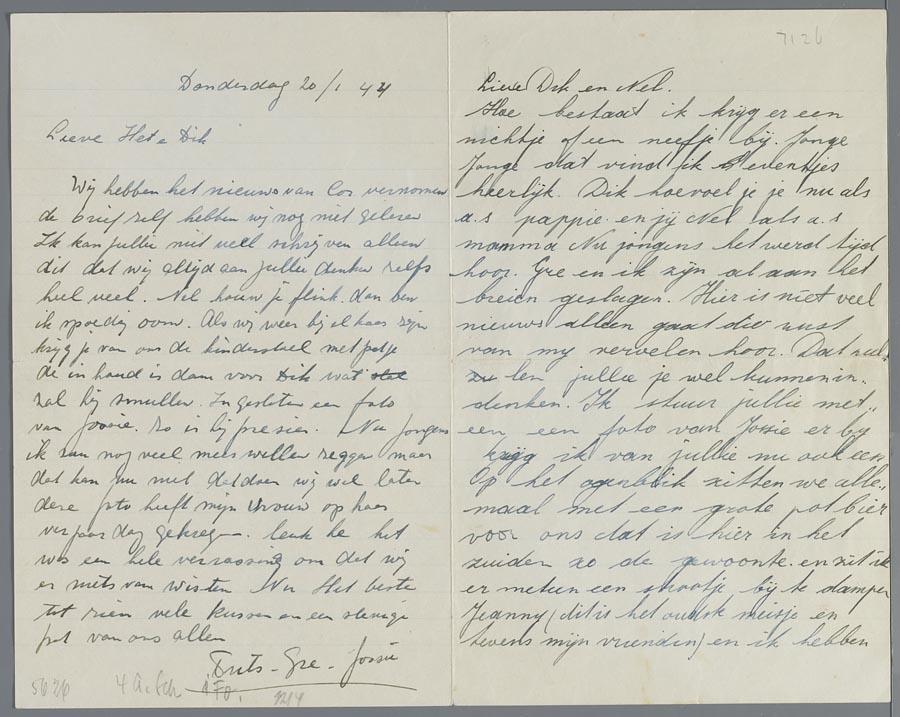 Donderdag 20/1 44
Lieve Het e Dik
Wij hebben het nieuws van Cor vernomen
de brief zelf hebben wij nog niet gelezen
Ik kan jullie niet veel schrijven alleen
dit dat wij altijd aan jullie denken zelfs
heel veel. Nel houw je flink. dan ben
ik spoedig oom. Als wij weer bij elkaar zijn
krijg je van ons de kinderstoel met potje
de inhoud is dam voor Dik wat
zal hij smullen. Ingesloten een foto
van Jossie. Zo is hij precies. Nu jongens
ik zou nog veel meer willen zeggen maar
dat kan nu niet dat doen wij wel later
deze foto heeft mijn vrouw op haar
verjaardag gekregen. leuk he het
was een hele verrassing om dat wij
er niets van wisten Nu Het beste
tot ziens vele kussen en een stevige
pot van ons allen
Frits - Gre - Jossie
5626 4 A. 1 Fo.
7126
Lieve Dik en Nel.
Hoe bestaat ik krijg er een
nichtje of een neefje bij. Jonge
Jonge dat vind ik eventjes
heerlijk. Dik hoe voel je je nu als
a.s pappie. en jij Nel als a.s
mamma Nu jongens het werd tijd
hoor. Gre en ik zijn al aan het
breien geslagen. Hier is niet veel
nieuws alleen gaat die rust
van mij vervelen hoor. Dat zul-
len jullie je wel kunnen in-
denken. Ik stuur jullie met-
een een foto van Jossie er bij
krijg ik van jullie nu ook een
Op het ogenblik zitten we alle-
maal met een grote pot bier
voor ons dat is hier in het
zuiden zo de gewoonte. en zit ik
er meteen een strootje bij te dampen
Jeanny (dit is het oudste meisje en
tevens mijn vriendin) en ik hebben